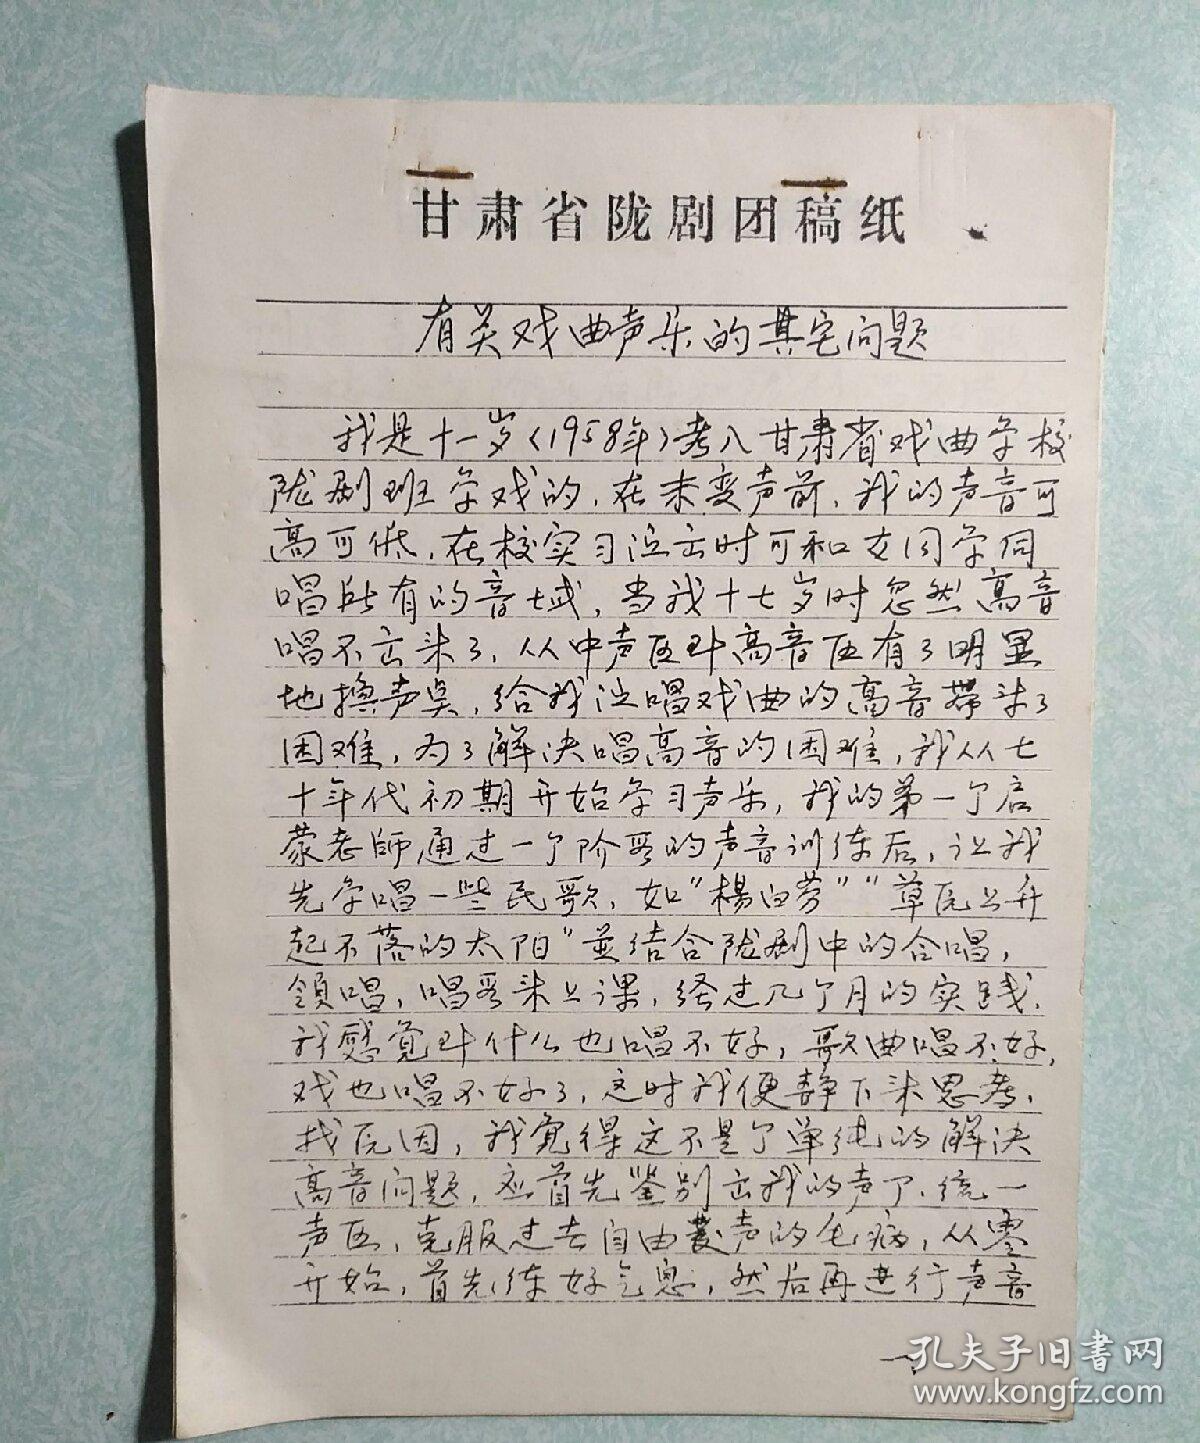 甘肃省陇剧团稿纸
有关戏曲声乐的其它问题
我是十一岁（1958年）考入甘肃省戏曲学校
陇剧班学戏的，在未变声前，我的声音可
高可低，在校实习演出时可和女同学同
唱所有的音域，当我十七岁时忽然高音
唱不出来了，从中声区到高音区有了明显
地换声点，给我演唱戏曲的高音带来了
困难，为了解决唱高音的困难，我从七
十年代初期开始学习声乐，我的第一个启
蒙老师通过一个阶段的声音训练后，让我
先学唱一些民歌，如"楊白劳""草原上升
起不落的太阳"並结合陇剧中的合唱，
領唱，唱段来上课，经过几个月的实践，
我感觉到什么也唱不好，歌曲唱不好，
戏也唱不好了，这时我便静下来思考，
找原因，我觉得这不是个单纯的解决
高音问题，应首先鉴别出我的声下，统一
声区，克服过去自由发声的毛病，从零
开始，首先练好气息，然后再进行声音
一、
孔夫子旧书网
www.kongfz.com